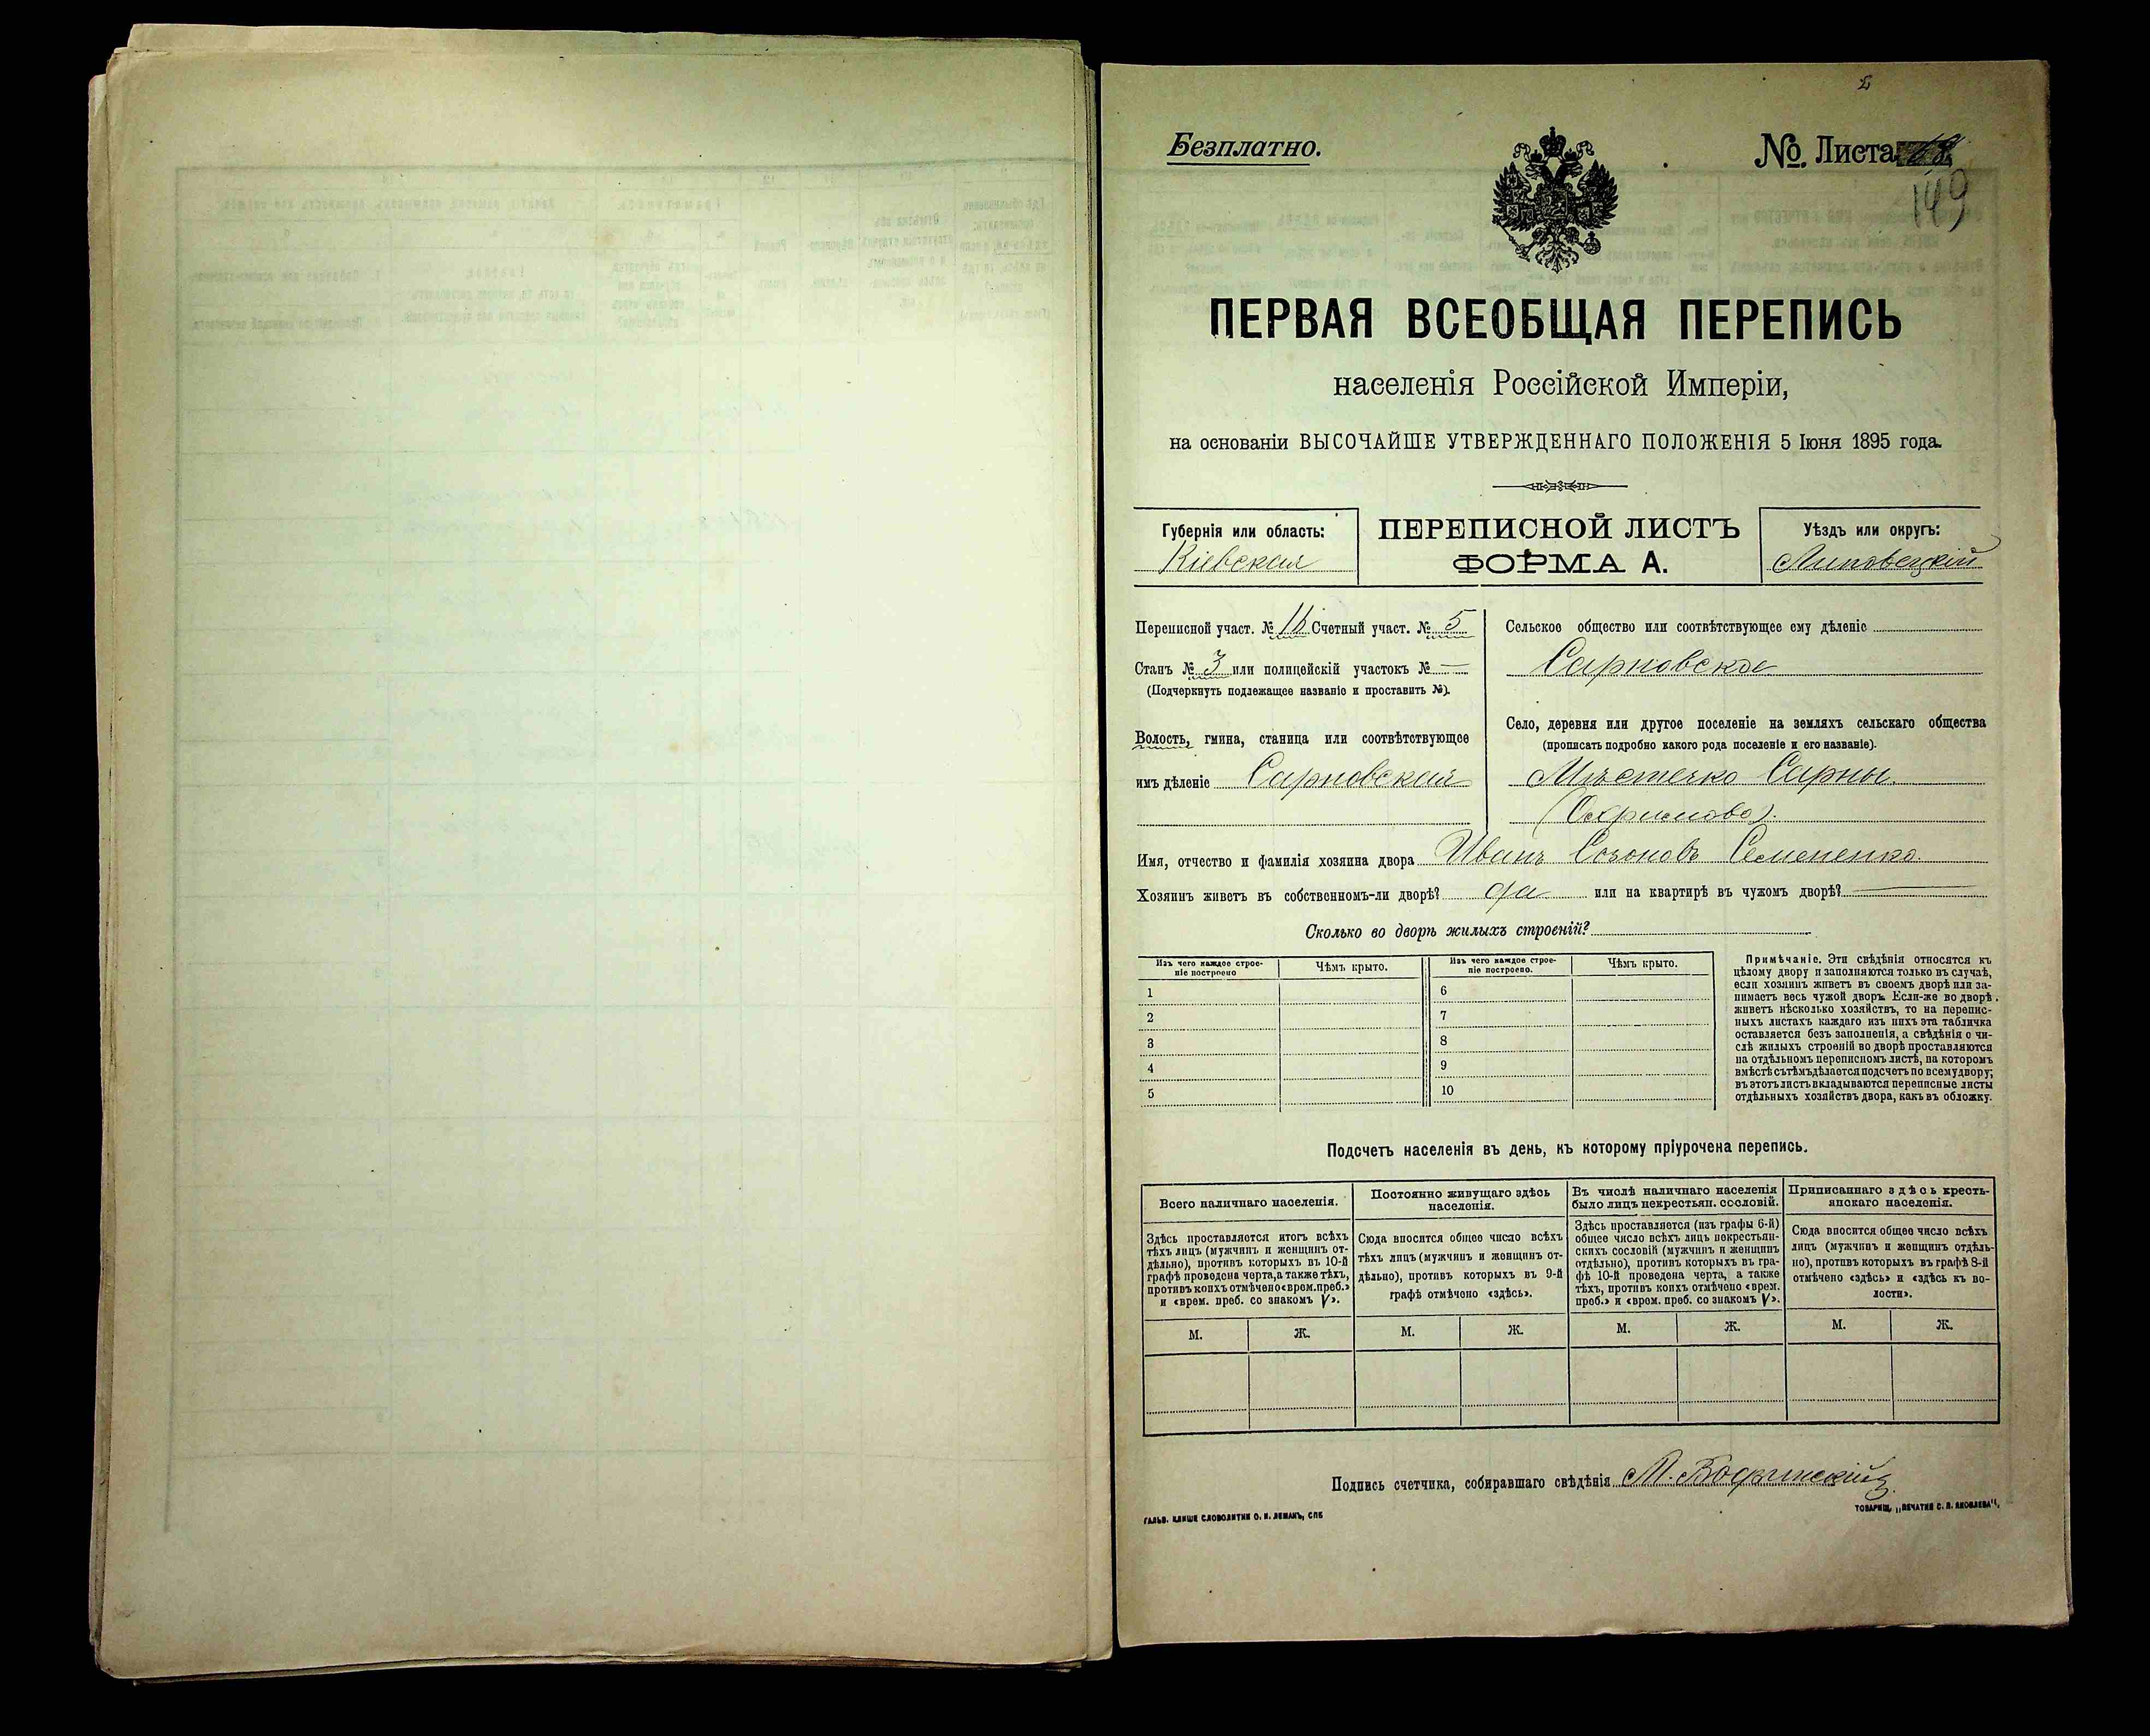 2
Безплатно.
№ Листа
149
ПЕРВАЯ ВСЕОБЩАЯ ПЕРЕПИСЬ
населенія Россійской Имперіи,
на основаніи ВЫСОЧАЙШЕ УТВЕРЖДЕННАГО ПОЛОЖЕНІЯ 5 Іюня 1895 года.
Губернія или область:
Кіевская
ПЕРЕПИСНОЙ ЛИСТЪ
ФОРМА А.
Уѣздъ или округъ:
Липовецкій
Переписной участ. № Счетный участ. № 5
Станъ № 3 или полицейскій участокъ № —
(Подчеркнуть подлежащее названіе и проставить №).
Волость, гмина, станица или соотвѣтствующее
имъ дѣленіе Сарновская
Сельское общество или соотвѣтствующее ему дѣленіе
Сарновское
Село, деревня или другое поселеніе на земляхъ сельскаго общества
(прописать подробно какого рода поселеніе и его названіе).
Мѣстечко Сарны.
Имя, отчество и фамилія хозяина двора Иванъ Созоновъ Семененко.
Хозяинъ живетъ въ собственномъ-ли дворѣ? да или на квартирѣ въ чужомъ дворѣ? —
Сколько во дворѣ жилыхъ строеній?
Изъ чего каждое строе-
ніе построено
Чѣмъ крыто.
Изъ чего каждое строе-
ніе построено.
Чѣмъ крыто.
1
2
3
4
5
6
7
8
9
10
Примѣчаніе. Эти свѣдѣнія относятся къ
цѣлому двору и заполняются только въ случаѣ,
если хозяинъ живетъ въ своемъ дворѣ или за-
нимаетъ весь чужой дворъ. Если-же во дворѣ
живетъ нѣсколько хозяйствъ, то на перепис-
ныхъ листахъ каждаго изъ нихъ эта табличка
оставляется безъ заполненія, а свѣдѣнія о чи-
слѣ жилыхъ строеній во дворѣ проставляются
на отдѣльномъ переписномъ листѣ, на которомъ
вмѣстѣ съ тѣмъ дѣлается подсчетъ по всему двору;
въ этотъ листъ вкладываются переписные листы
отдѣльныхъ хозяйствъ двора, какъ въ обложку.
Подсчетъ населенія въ день, къ которому пріурочена перепись.
Всего наличнаго населенія.
Здѣсь проставляется итогъ всѣхъ
тѣхъ лицъ (мужчинъ и женщинъ от-
дѣльно), противъ которыхъ въ 10-й
графѣ проведена черта, а также тѣхъ,
противъ коихъ отмѣчено «врем. преб.»
и «врем. преб. со знакомъ V».
Постоянно живущаго здѣсь
населенія.
Сюда вносится общее число всѣхъ
тѣхъ лицъ (мужчинъ и женщинъ от-
дѣльно), противъ которыхъ въ 9-й
графѣ отмѣчено «здѣсь».
Въ числѣ наличнаго населенія
было лицъ некрестьян. сословій.
Здѣсь проставляется (изъ графы 6-й)
общее число всѣхъ лицъ некрестьян-
скихъ сословій (мужчинъ и женщинъ
отдѣльно), противъ которыхъ въ гра-
фѣ 10-й проведена черта, а также
тѣхъ, противъ коихъ отмѣчено «врем.
преб.» и «врем. преб. со знакомъ V».
Приписаннаго здѣсь кресть-
янскаго населенія.
Сюда вносится общее число всѣхъ
лицъ (мужчинъ и женщинъ отдѣль-
но), противъ которыхъ въ графѣ 8-й
отмѣчено «здѣсь» и «здѣсь къ во-
лости».
М. Ж. М. Ж. М. Ж. М. Ж.
Подпись счетчика, собиравшаго свѣдѣнія М.
ГАЛЬВ. КЛИШЕ СЛОВОЛИТНИ О. И. ЛЕМАНЪ, СПБ
ТОВАРИЩ. „ПЕЧАТНЯ С. П. ЯКОВЛЕВА".